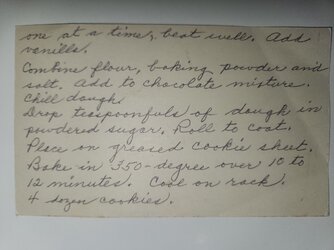 one at a time, beat well. Add
vanilla.
Combine flour, baking powder and
salt. Add to chocolate mixture.
Chill dough.
Drop teaspoonfuls of dough in
powdered sugar. Roll to coat.
Place on greased cookie sheet.
Bake in 350-degree over 10 to
12 minutes. Cool on rack.
4 dozen cookies.